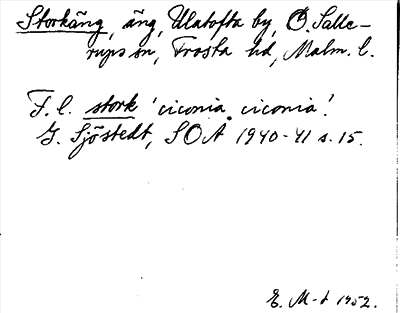 Storkäng, äng, Ulatofta by, Ö. Salle-
rups sn, Frosta hd, Malm. l.
F. l. stork 'ciconia ciconia'.
G. Sjöstedt, SOÅ 1940-41 s. 15.
E. M-d 1952.